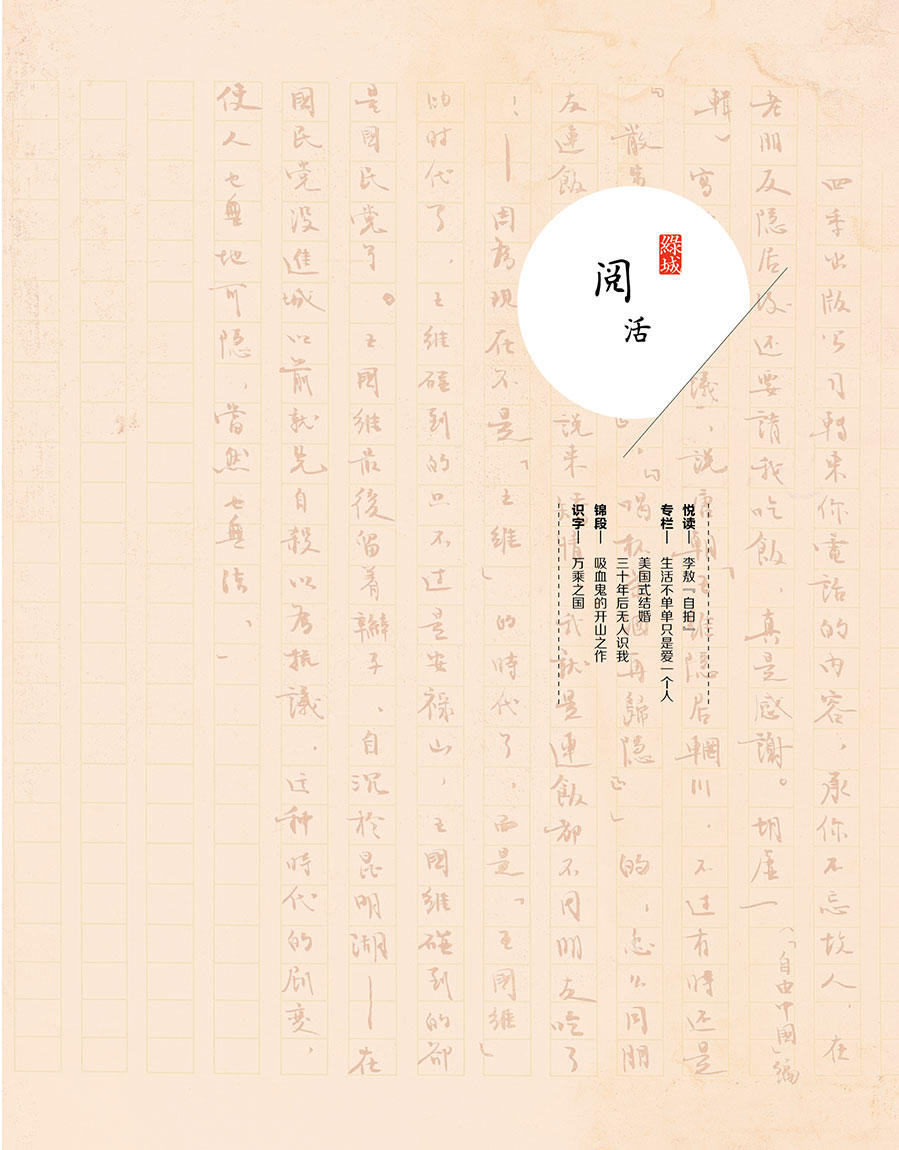 綠城
阅
活
悦读— 李敖『自拍』
专栏— 生活不单单只是爱一个人
美国式结婚
三十年后无人识我
锦段— 吸血鬼的开山之作
识字— 万乘之国
四季出版公司轉来你電話的内容，承你不忘故人，在
老朋友隐居後还要請我吃飯，真是感謝。胡虚一（「自由中國」編
輯）寫 議，說唐朝王維隐居輞川，不过有時还是
『散 喝杯 酒再歸隐』」的，怎么同朋
友連飯 說来 情我就是連飯都不同朋友吃了
！—因為現在不是「王維」的時代了，而是「王國維」
的时代了，王維碰到的只不过是安禄山，王國維碰到的却
是國民党了。王國維最後留着辮子、自沉於昆明湖—在
國民党没進城以前就先自殺以為抗議，这种時代的剧变，
使人也無地可隐，當然也無法